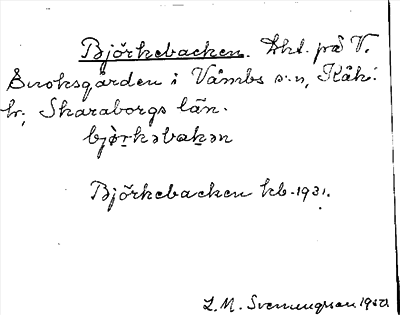 Björkebacken. Lht. på V.
Snoksgården i Våmbs s:n, Kåk:
hr; Skaraborgs län.
bjørkəbakən
Björkebacken kb. 1931.
L. M. Svenungsson